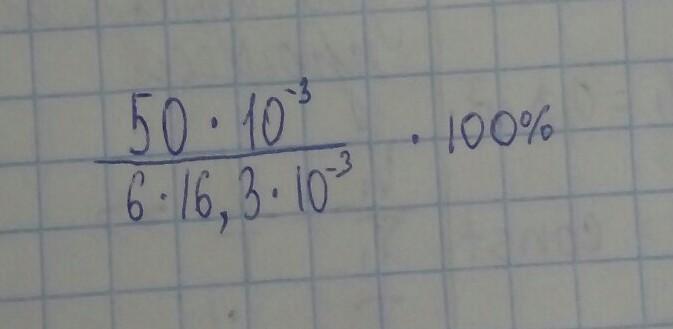 50 · 10⁻³
6 · 16,3 · 10⁻³ · 100%